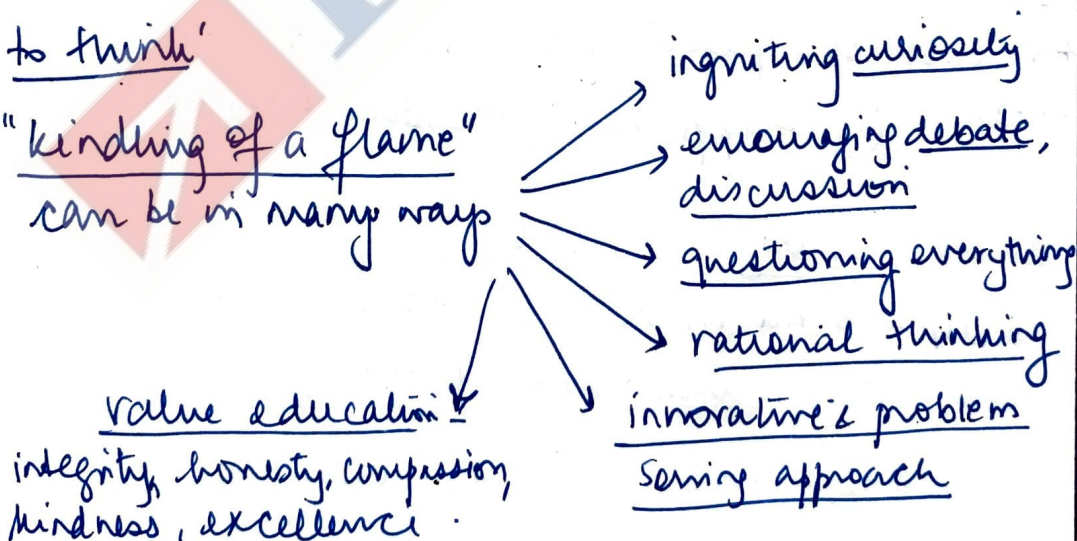 to think'
"kindling of a flame"
can be in many ways
ingniting curiosity
encouraging debate,
discussion
questioning everything
rational thinking
innovative & problem
solving approach
value education :-
integrity, honesty, compassion,
kindness, excellence .